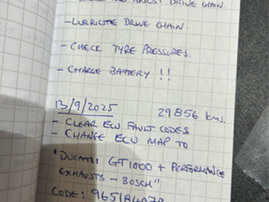 ADJUST DRIVE CHAIN
- LUBRICATE DRIVE CHAIN
- CHECK TYRE PRESSURES
- CHARGE BATTERY !!
13/9/2025 29856 kms.
- CLEAR ECU FAULT CODES
- CHANGE ECU MAP TO
"DUCATI GT1000 + PERFORMANCE
EXHAUSTS - BOSCH"
CODE: